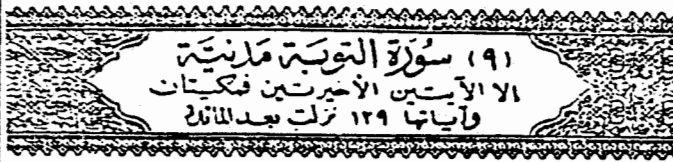 (٩) سورة التوبة مدنية
إلا الآيتين الأخيرتين فمكيتان
وآياتها ١٢٩ نزلت بعد المائدة